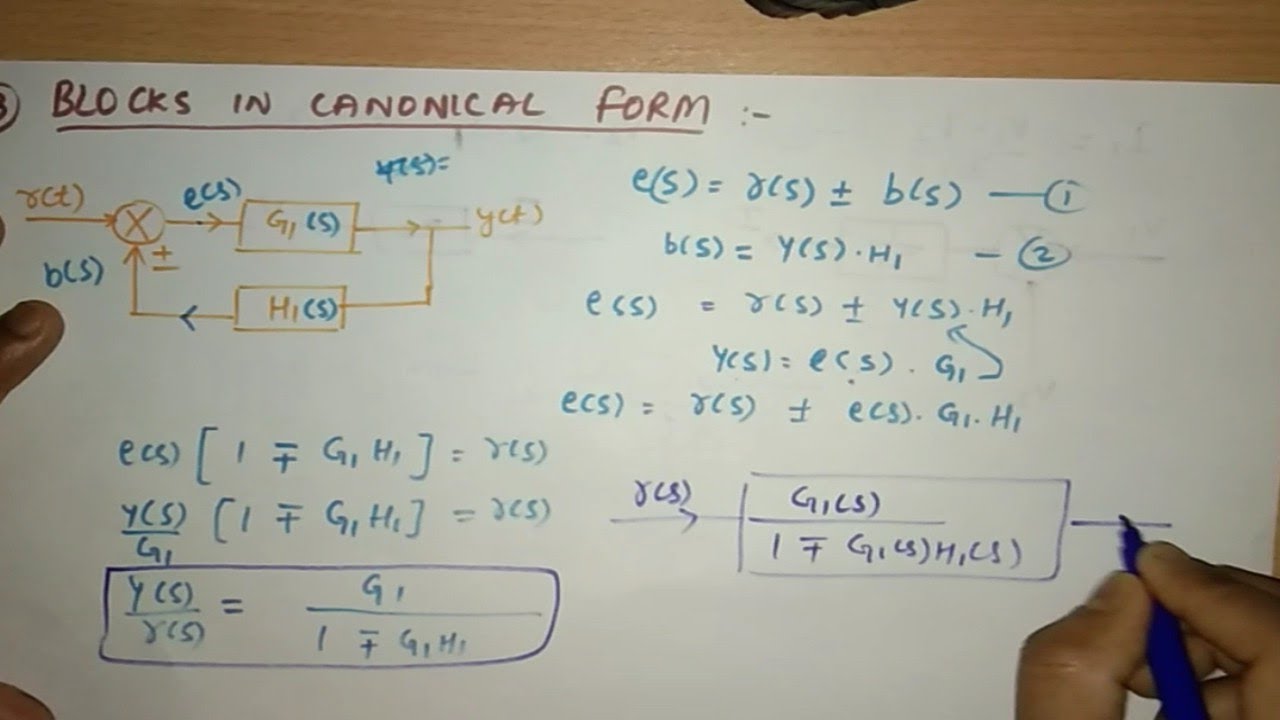 3) BLOCKS IN CANONICAL FORM :-
r(t)
e(s)
G₁(s)
y(t)
±
b(s)
H₁(s)
e(s) = r(s) ± b(s) — ①
b(s) = Y(s)·H₁ - ②
e(s) = r(s) ± Y(s)·H₁
Y(s) = e(s) · G₁
e(s) = r(s) ± e(s)·G₁·H₁
e(s) [1 ∓ G₁H₁] = r(s)
Y(s)/G₁ [1 ∓ G₁H₁] = r(s)
Y(s)/r(s) = G₁ / 1 ∓ G₁H₁
r(s)
G₁(s)
1 ∓ G₁(s)H₁(s)